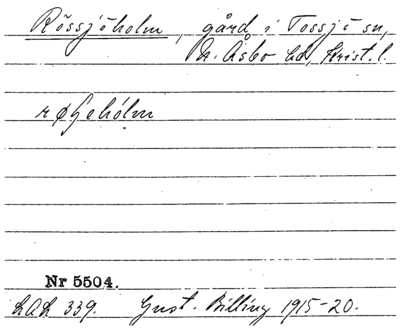 Rössjöholm, gård i Tossjö sn,
N. Åsbo hd, Krist. l.
Nr 5504.
339. Gust. Billing 1915-20.